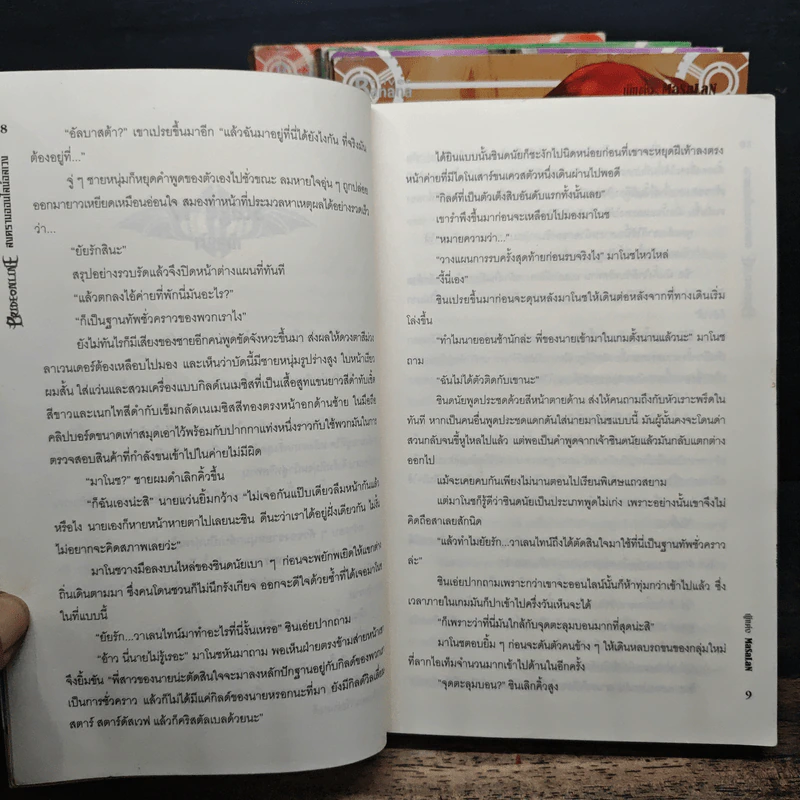 Banana
ผู้แต่ง MaSaLaN
8
BRIDEONLINE
สงครามออนไลน์อลเวง
"อัลบาสต้า?" เขาเปรยขึ้นมาอีก "แล้วฉันมาอยู่ที่นี่ได้ยังไงกัน ที่จริงมัน
ต้องอยู่ที่..."
จู่ ๆ ชายหนุ่มก็หยุดคำพูดของตัวเองไปชั่วขณะ ลมหายใจอุ่น ๆ ถูกปล่อย
ออกมายาวเหยียดเหมือนอ่อนใจ สมองทำหน้าที่ประมวลหาเหตุผลได้อย่างรวดเร็ว
ว่า...
"ยัยรักสินะ"
สรุปอย่างรวบรัดแล้วจึงปิดหน้าต่างแผนที่ทันที
"แล้วตกลงไอ้ค่ายที่พักนี่มันอะไร?"
"ก็เป็นฐานทัพชั่วคราวของพวกเราไง"
ยังไม่ทันไรก็มีเสียงของชายอีกคนพูดขัดจังหวะขึ้นมา ส่งผลให้ดวงตาสีม่วง
ลาเวนเดอร์ต้องเหลือบไปมอง และเห็นว่าบัดนี้มีชายหนุ่มรูปร่างสูง ใบหน้าเรียว
ผมสั้น ใส่แว่นและสวมเครื่องแบบกิลด์เนเมซิสที่เป็นเสื้อสูทแขนยาวสีดำทับเชิ้ต
สีขาวและเนกไทสีดำกับเข็มกลัดเนเมซิสสีทองตรงหน้าอกด้านซ้าย ในมือถือ
คลิปบอร์ดขนาดเท่าสมุดเอาไว้พร้อมกับปากกาแท่งหนึ่งราวกับใช้พวกมันในการ
ตรวจสอบสินค้าที่กำลังขนเข้าไปในค่ายไม่มีผิด
"มาโนช?" ชายผมดำเลิกคิ้วขึ้น
"ก็ฉันเองน่ะสิ" นายแว่นยิ้มกว้าง "ไม่เจอกันแป๊บเดียวลืมหน้ากันแล้ว
หรือไง นายเองก็หายหน้าหายตาไปเลยนะชิน ดีนะว่าเราได้อยู่ฝั่งเดียวกัน ไม่งั้น
ไม่อยากจะคิดสภาพเลยว่ะ"
มาโนชวางมือลงบนไหล่ของชินดนัยเบา ๆ ก่อนจะพยักพเยิดให้แขกต่าง
ถิ่นเดินตามมา ซึ่งคนโดนชวนก็ไม่นึกรังเกียจ ออกจะดีใจด้วยซ้ำที่ได้เจอมาโนช
ในที่แบบนี้
"ยัยรัก...วาเลนไทน์มาทำอะไรที่นี่งั้นเหรอ" ชินเอ่ยปากถาม
"อ้าว นี่นายไม่รู้เรอะ" มาโนชหันมาถาม พอเห็นฝ่ายตรงข้ามส่ายหน้า
จึงยิ้มขัน "พี่สาวของนายน่ะตัดสินใจจะมาลงหลักปักฐานอยู่กับกิลด์ของพวก
เป็นการชั่วคราว แล้วก็ไม่ได้มีแค่กิลด์ของนายหรอกนะที่มา ยังมีกิลด์
สตาร์ สตาร์ดัสเวฟ แล้วก็คริสตัลเบลด้วยนะ"
ได้ยินแบบนั้นชินดนัยก็ชะงักไปนิดหน่อยก่อนที่เขาจะหยุดฝีเท้าลงตรง
หน้าค่ายที่มีไดโนเสาร์ขนเควสตัวหนึ่งเดินผ่านไปพอดี
"กิลด์ที่เป็นตัวเต็งสิบอันดับแรกทั้งนั้นเลย"
เขารำพึงขึ้นมาก่อนจะเหลือบไปมองมาโนช
"หมายความว่า..."
"วางแผนการรบครั้งสุดท้ายก่อนรบจริงไง" มาโนชไหวไหล่
"งี้นี่เอง"
ชินเปรยขึ้นมาก่อนจะดุนหลังมาโนชให้เดินต่อหลังจากที่ทางเดินเริ่ม
โล่งขึ้น
"ทำไมนายออนช้านักล่ะ พี่ของนายเข้ามาในเกมตั้งนานแล้วนะ" มาโนช
ถาม
"ฉันไม่ได้ตัวติดกับเขานะ"
ชินดนัยพูดประชดด้วยสีหน้าตายด้าน ส่งให้คนถามถึงกับหัวเราะพรืดใน
ทันที หากเป็นคนอื่นพูดประชดแดกดันใส่นายมาโนชแบบนี้ มันผู้นั้นคงจะโดนด่า
สวนกลับจนขี้หูไหลไปแล้ว แต่พอเป็นคำพูดจากเจ้าชินดนัยแล้วมันกลับแตกต่าง
ออกไป
แม้จะเคยคบกันเพียงไม่นานตอนไปเรียนพิเศษแถวสยาม
แต่มาโนชก็รู้ดีว่าชินดนัยเป็นประเภทพูดไม่เก่ง เพราะอย่างนั้นเขาจึงไม่
คิดถือสาเลยสักนิด
"แล้วทำไมยัยรัก...วาเลนไทน์ถึงได้ตัดสินใจมาใช้ที่นี่เป็นฐานทัพชั่วคราว
ล่ะ"
ชินเอ่ยปากถามเพราะกว่าเขาจะออนไลน์นั้นก็ห้าทุ่มกว่าเข้าไปแล้ว ซึ่ง
เวลาภายในเกมมันก็ปาเข้าไปครึ่งวันเห็นจะได้
"ก็เพราะว่าที่นี่มันใกล้กับจุดตะลุมบอนมากที่สุดน่ะสิ"
มาโนชตอบยิ้ม ๆ ก่อนจะดันตัวคนข้าง ๆ ให้เดินหลบรถขนของกลุ่มใหม่
ที่ลากไอเท็มจำนวนมากเข้าไปด้านในอีกครั้ง
"จุดตะลุมบอน?" ชินเลิกคิ้วสูง
ผู้แต่ง MaSaLaN
9